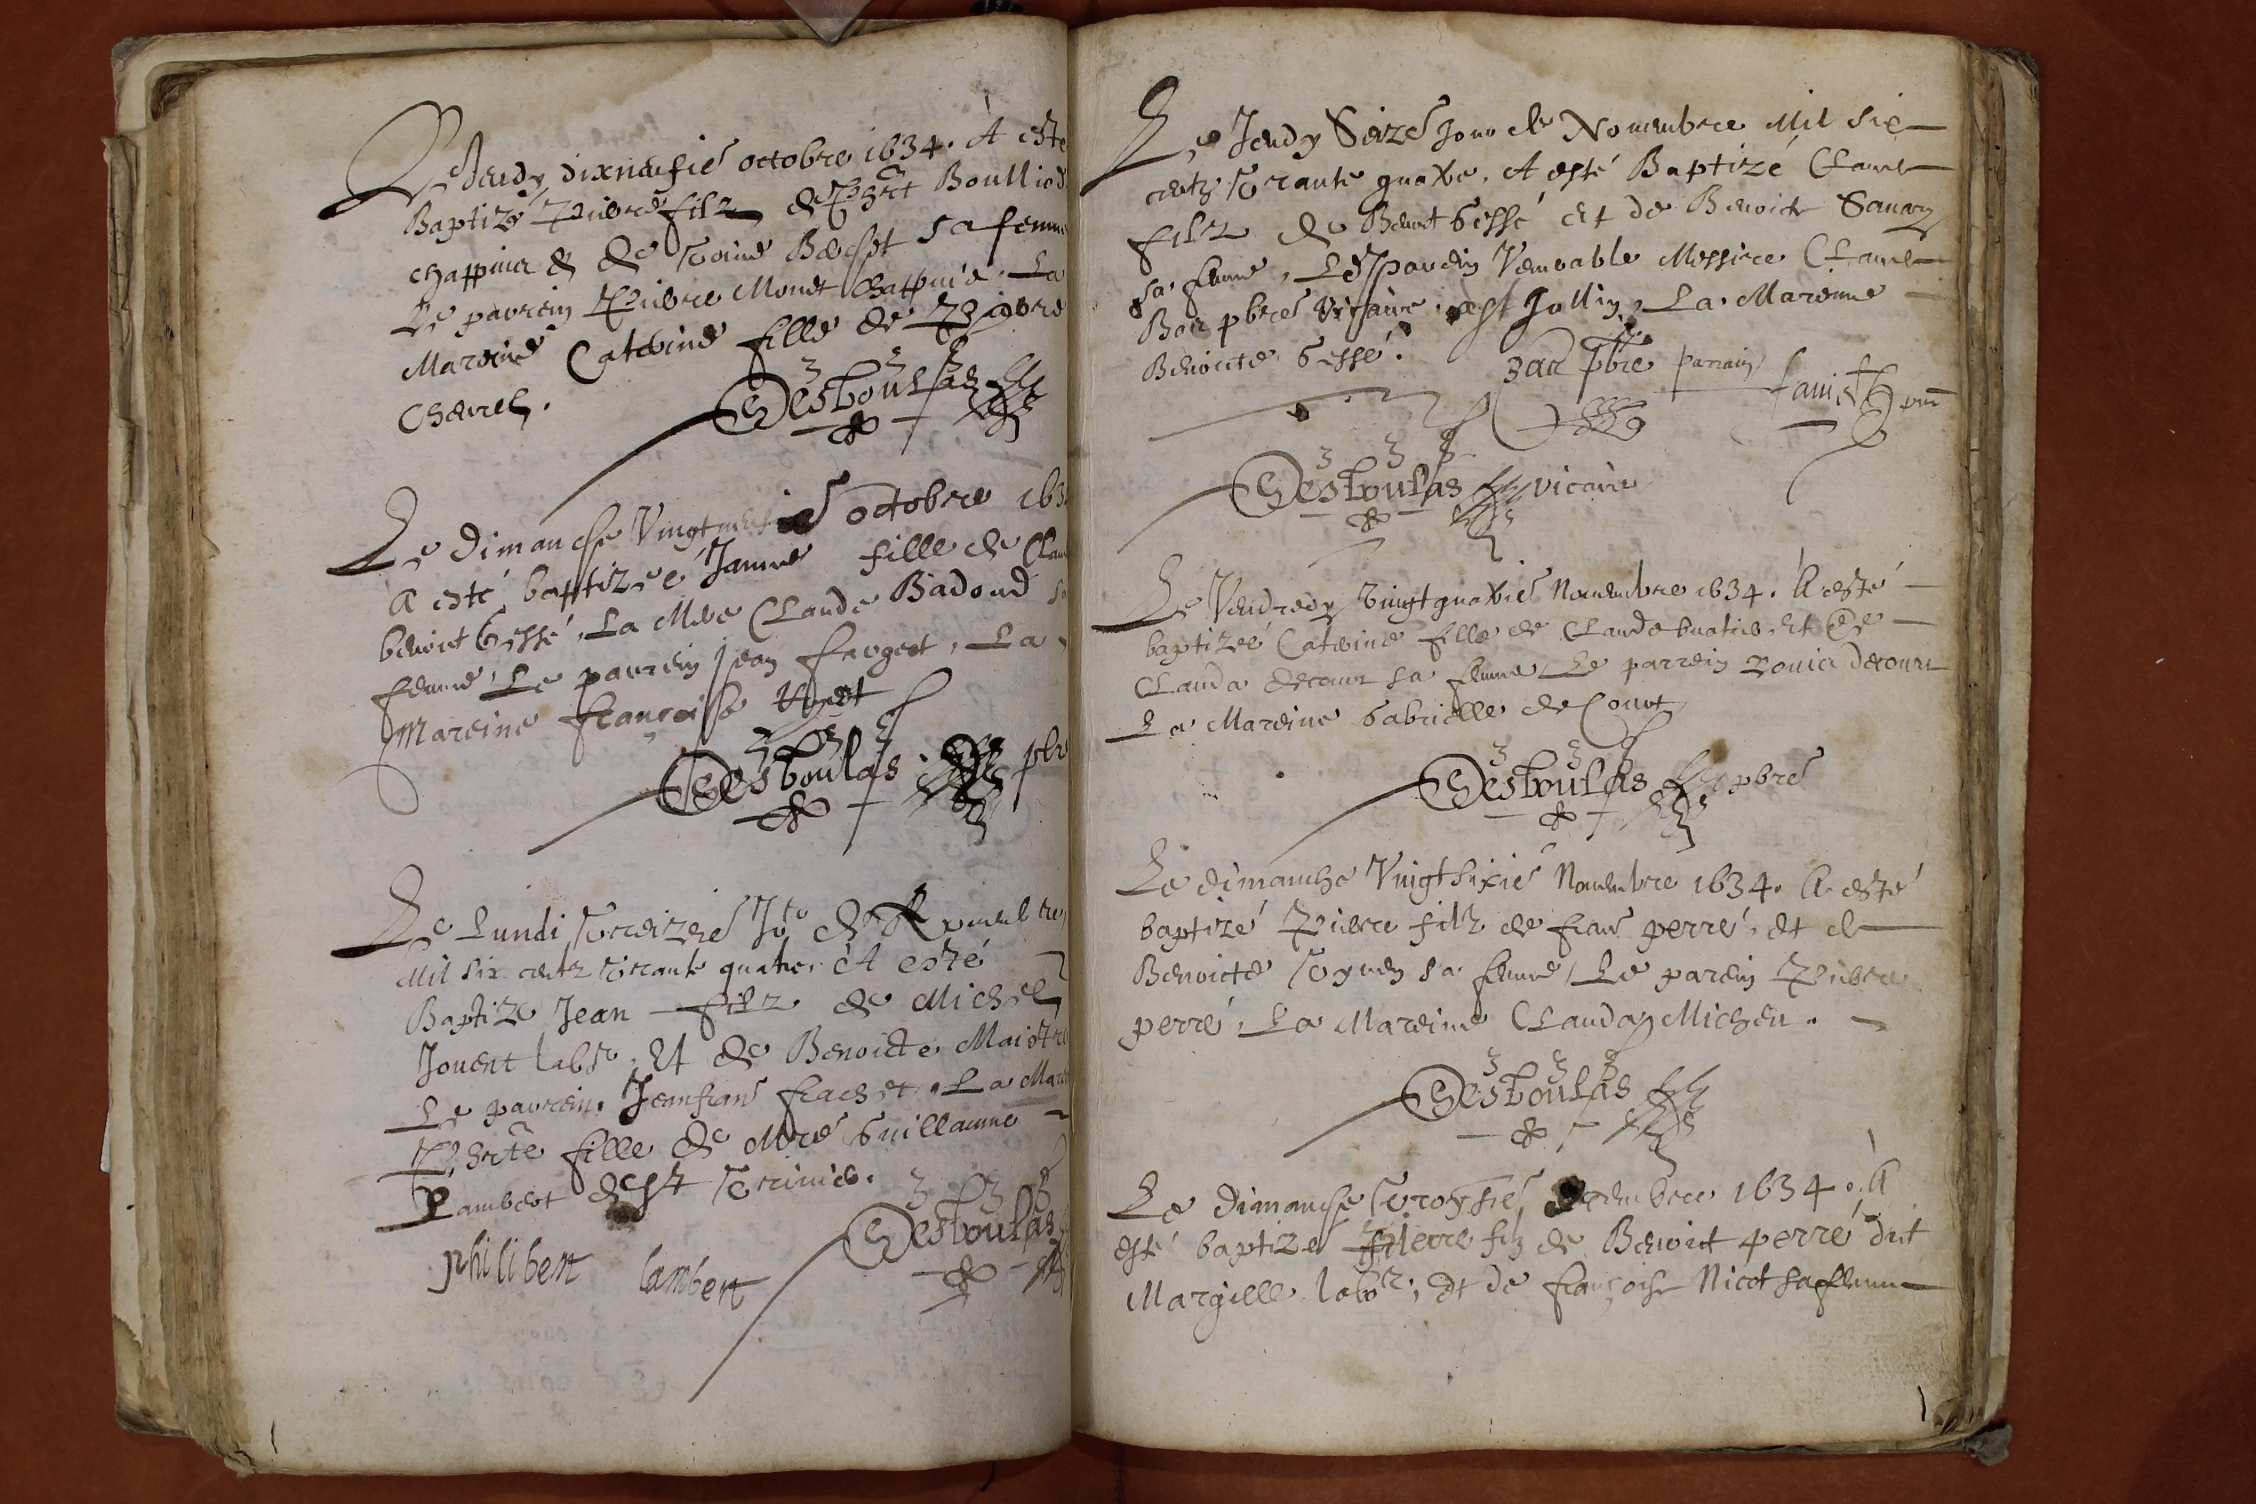 Le Jeudy dixneufie octobre 1634. A esté
Baptizé Pierre filz de Phbert Boulliod
chappuis & de Toine Bochet sa femme
Le parrein Pierre Monet chappuis. La
Mareine Caterine fille de Pierre
Charvet.
Desboulas
Le dimanche Vingt octobre 163
A esté baptizée Janne fille de Clau
benoict Gessé, La Mere Claude Badoud sa
femme, Le parrein Jean farget, La
Mareine françoise
Desboulas pbr
Le Lundi Treizie Jo de Novembre
Mil six centz trante quatre. A esté
Baptizé Jean filz de Michel
Jouent labr, Et de Benoicte Maistre
Le parrein. Jeanfran frachet. La Mar
Phbte fille de Mre Guillaume
Lambert
philibert lambert
Desboulas
Le Jeudy Seize Jour de Novembre Mil six
centz trante quatre, A esté Baptizé Claude
filz de Benoict Gessé et de Benoicte Savary
sa femme, Le parrein Venerable Messire Claude
pbre Vicaire Jullin, La Mareine
Benoicte Gessé.
pbre parrain
Desboulas vicaire
Le Vendredy Vingtquatrie Novembre 1634. A esté
baptizée Caterine fille de Claude buatier, Et De
Clauda decourt sa femme, Le parrein Rouier decourt
La Mareine Gabrielle de Court
Desboulas pbre
Le dimanche Vingtsixie Novembre 1634. A esté
baptizé Pierre filz de fran perré, et de
Benoicte sa femme, Le parrein Pierre
perré, La Mareine Clauda Micheu.
Desboulas
Le Dimanche Troysie decembre 1634. A
esté baptizé pierre filz de Benoict perré dict
Margielle labr, Et de françoise Nicot sa femme